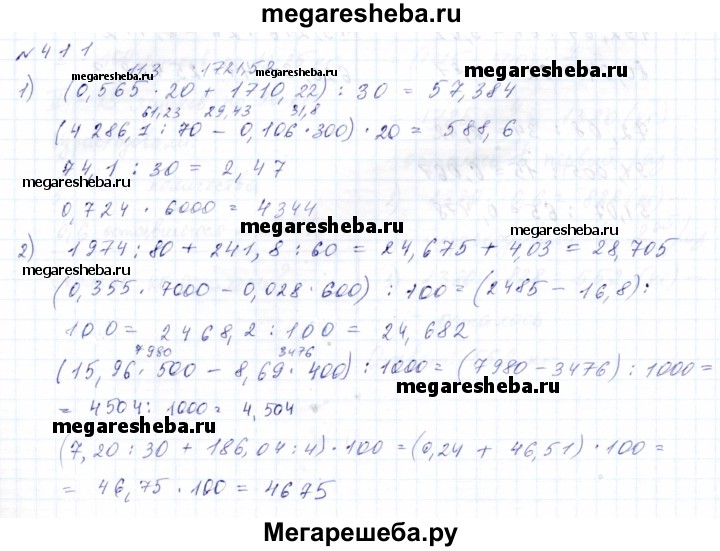 megaresheba.ru
№ 411
11,3 1721,52
megaresheba.ru megaresheba.ru
1) (0,565 · 20 + 1710,22) : 30 = 57,384
61,23 29,43 31,8
(4286,1 : 70 − 0,106 · 300) · 20 = 588,6
74,1 : 30 = 2,47
megaresheba.ru megaresheba.ru
0,724 · 6000 = 4344
2) 1974 : 80 + 241,8 : 60 = 24,675 + 4,03 = 28,705
megaresheba.ru megaresheba.ru
(0,355 · 7000 − 0,028 · 600) : 100 = (2485 − 16,8) :
100 = 2468,2 : 100 = 24,682
7980 3476
(15,96 · 500 − 8,69 · 400) : 1000 = (7980 − 3476) : 1000 =
megaresheba.ru
= 4504 : 1000 = 4,504
megaresheba.ru
(7,20 : 30 + 186,04 : 4) · 100 = (0,24 + 46,51) · 100 =
= 46,75 · 100 = 4675
Мегарешеба.ру